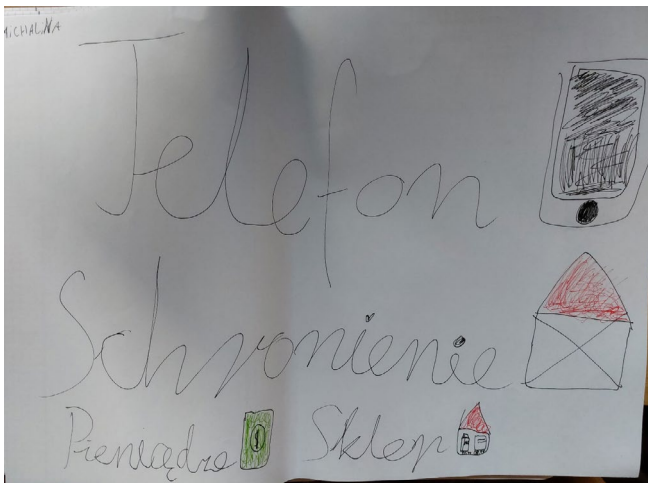 MiCHALiNA
Telefon
Schronienie
Pieniądze Sklep